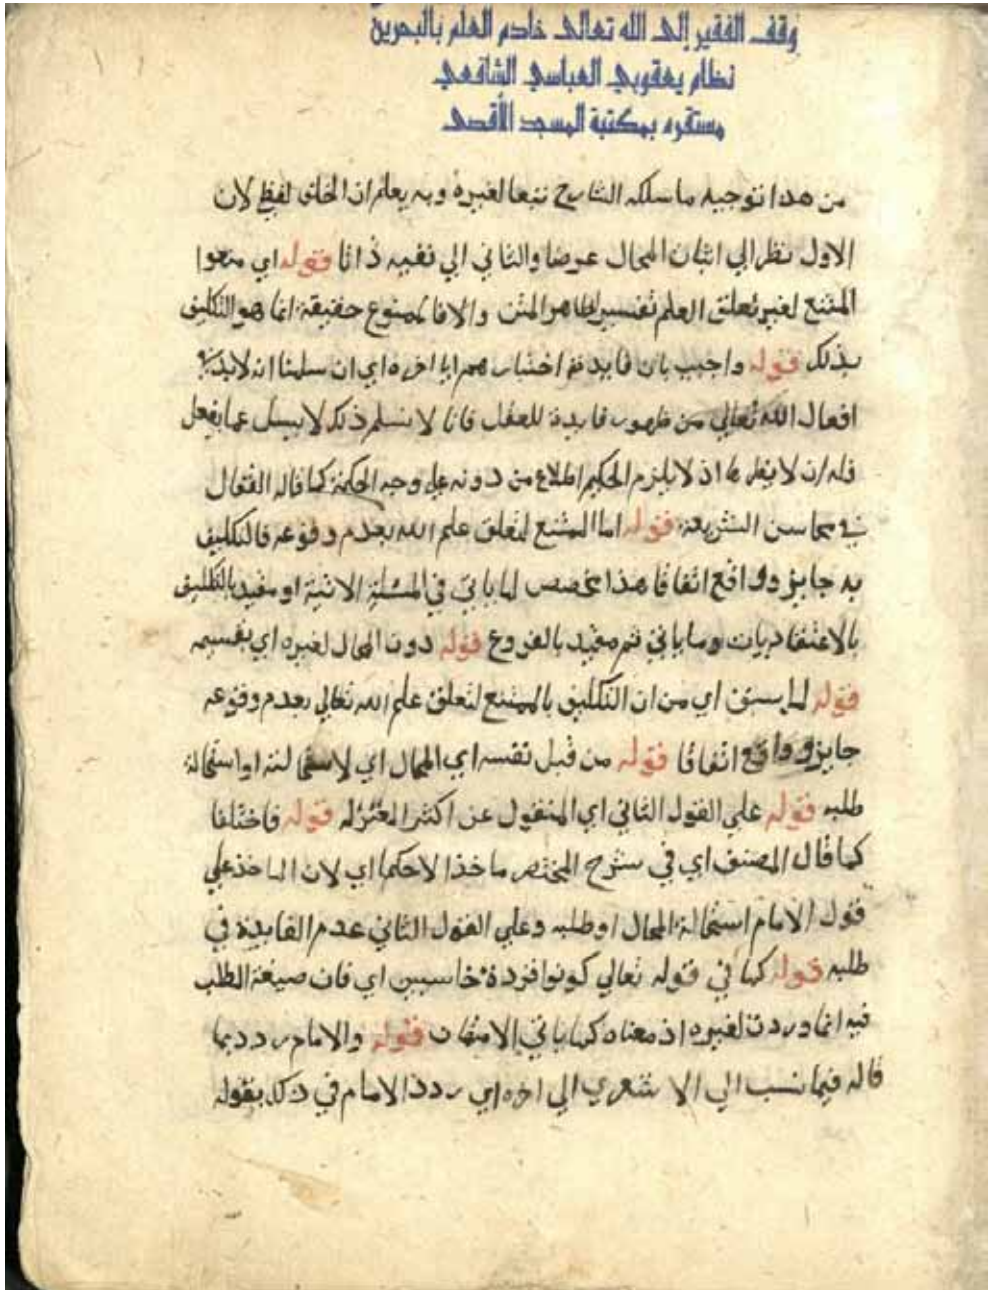 وقف الفقير إلى الله تعالى خادم العلم بالبحرين
نظام يعقوبي العباسي الشافعي
مستقره بمكتبة المسجد الأقصى
من هذا توجيه ما سلكه الشارح تبعا لغيره وبه يعلم ان الخلاف لفظي لان
الاول نظر الي اتيان المحال عرضا والثاني الي نفيه ذاتا قوله اي منعوا
الممتنع لغير تعلق العلم تفسير لظاهر المتن والا فالممنوع حقيقة انما هو التكليف
بذلك قوله واجيب بان فايدته اختبارهم الي اخره اي ان سلمنا انه لابد في
افعال الله تعالي من ظهور فايدة للعقل فانا لا نسلم ذلك لا يسيل عما يفعل
فله ان لا يظهرها اذ لا يلزم الحكيم اطلاع من دونه علي وجه الحكمة كما قاله القفال
في محاسن الشريعة قوله اما الممتنع لتعلق علم الله بعدم وقوعه فالتكليف
به جايز وواقع اتفاقا هذا مخصص لما ياتي في المسئلة الاتية او مقيد بالتكليف
بالاعتقاديات وما ياتي ثم مقيد بالفروع قوله دون المحال لغيره اي بقسميه
قوله لما سبق اي من ان التكليف بالممتنع لتعلق علم الله تعالي بعدم وقوعه
جايز وواقع اتفاقا قوله من قبل نفسه اي المحال اي لاستحالته او استحالة
طلبه قوله علي القول الثاني اي المنقول عن اكثر المعتزله قوله فاختلفا
كما قال المصنف اي في شرح المختصر ماخذا لا حكما اي لان الماخذ علي
قول الامام استحالة المحال او طلبه وعلي القول الثاني عدم الفايدة في
طلبه قوله كما في قوله تعالي كونوا قردة خاسيين اي فان صيغة الطلب
فيه انما وردت لغيره اذ معناه كما ياتي الامتهان قوله والامام ردد بما
قاله فيما نسب الي الاشعري الي اخره اي ردد الامام في ذلك بقوله